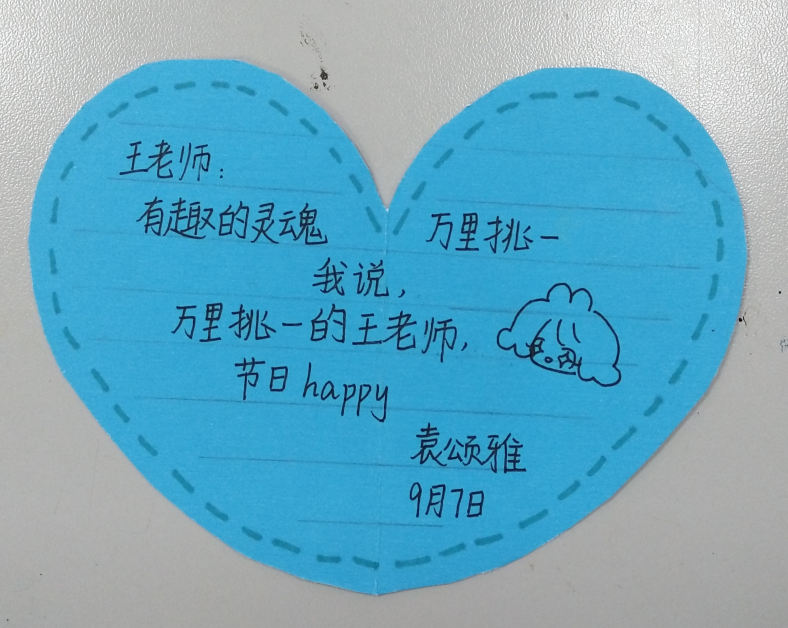 王老师:
有趣的灵魂 万里挑一
我说,
万里挑一的王老师,
节日happy
袁颂雅
9月7日